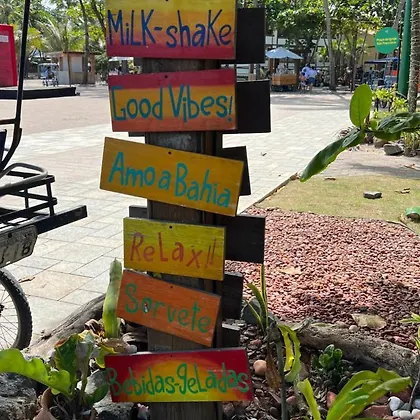 MiLK-shaKe
Good Vibes!
Amo a Bahia
ReLax!!
Sorvete
Bebidas-geLadas